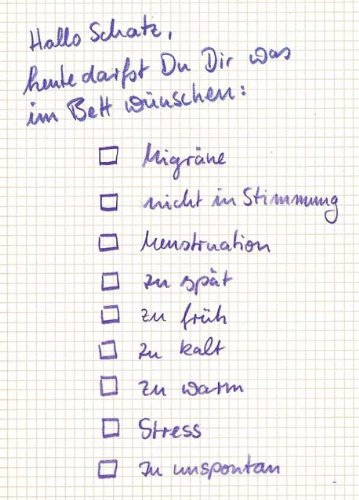 Hallo Schatz,
heute darfst Du Dir was
im Bett wünschen:
Migräne
nicht in Stimmung
Menstruation
zu spät
zu früh
zu kalt
zu warm
Stress
zu unspontan